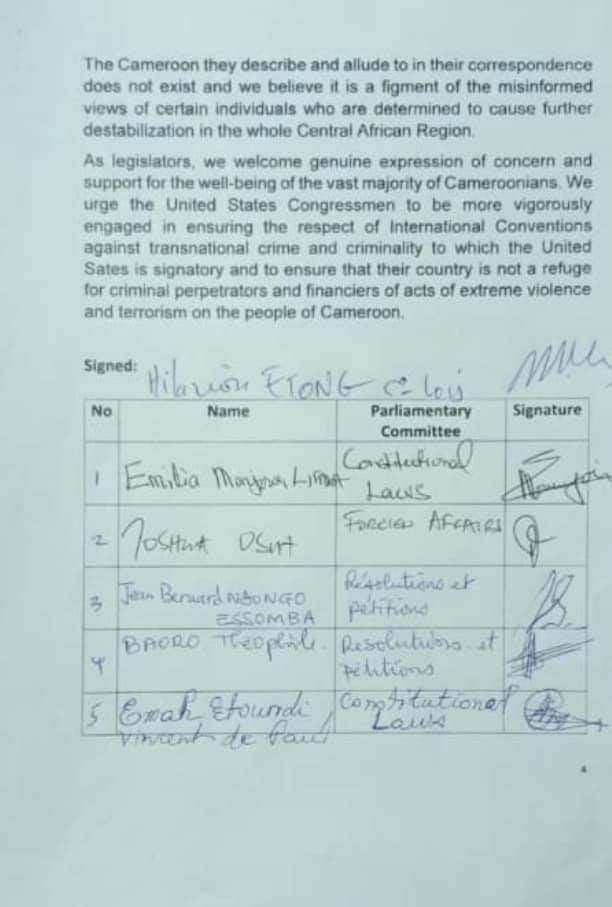 The Cameroon they describe and allude to in their correspondence
does not exist and we believe it is a figment of the misinformed
views of certain individuals who are determined to cause further
destabilization in the whole Central African Region.
As legislators, we welcome genuine expression of concern and
support for the well-being of the vast majority of Cameroonians. We
urge the United States Congressmen to be more vigorously
engaged in ensuring the respect of International Conventions
against transnational crime and criminality to which the United
Sates is signatory and to ensure that their country is not a refuge
for criminal perpetrators and financiers of acts of extreme violence
and terrorism on the people of Cameroon.
Signed: Hilarion ETONG
No Name Parliamentary Committee Signature
1 Emilia Constitutional Laws
2 JOSHUA OSIH FOREIGN AFFAIRS
3 Jean Bernard NDONGO ESSOMBA Résolutions et pétitions
4 BAORO Théophile. Resolutions et pétitions
5 Emah Etoundi Vincent de Paul Constitutional Laws
4